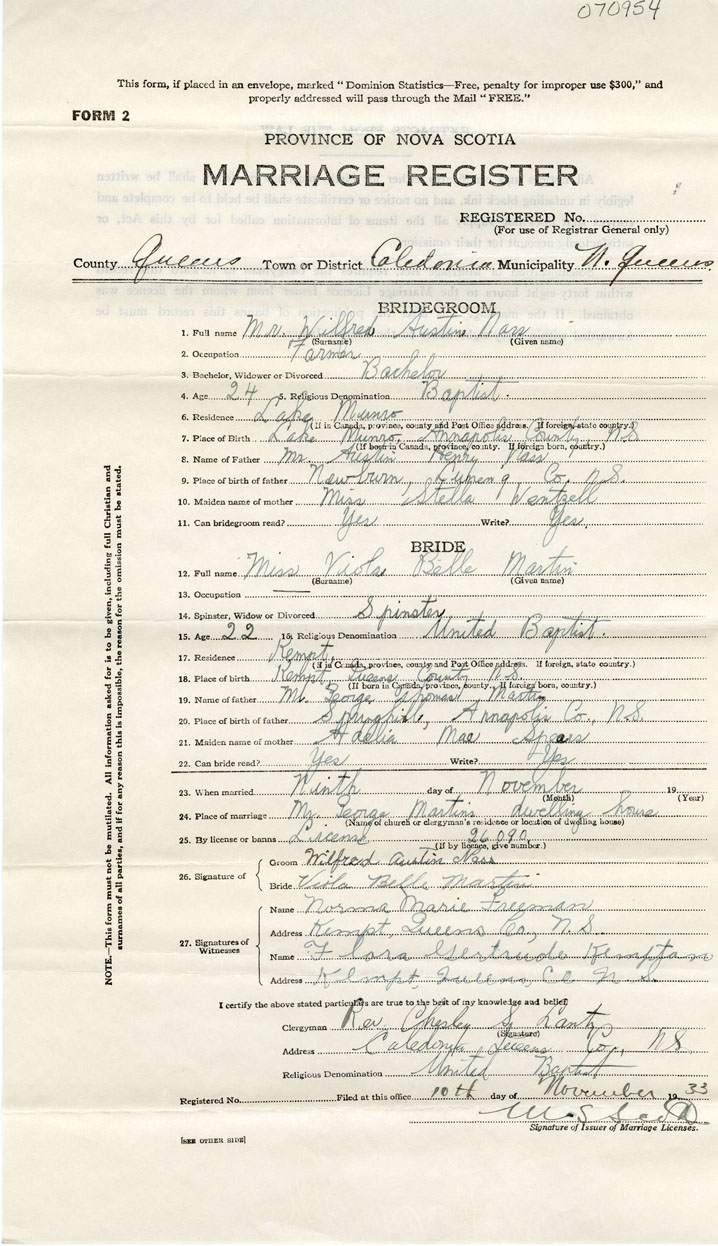 070954
This form, if placed in an envelope, marked "Dominion Statistics—Free, penalty for improper use $300," and
properly addressed will pass through the Mail "FREE."
FORM 2
PROVINCE OF NOVA SCOTIA
MARRIAGE REGISTER
REGISTERED No.
(For use of Registrar General only)
County Queens Town or District Caledonia Municipality N. Queens
BRIDEGROOM
1. Full name Mr. Wilfred Austin Nass
(Surname) (Given name)
2. Occupation Farmer
3. Bachelor, Widower or Divorced Bachelor
4. Age 24 5. Religious Denomination Baptist.
6. Residence Lake Munro
(If in Canada, province, county and Post Office address. If foreign, state country.)
7. Place of Birth Lake Munro, Annapolis County, N.S
(If born in Canada, province, county. If foreign born, country.)
8. Name of Father Mr. Austin Henry Nass
9. Place of birth of father Newburn, Lunenq Co., N.S.
10. Maiden name of mother Miss Stella Wentzell
11. Can bridegroom read? Yes Write? Yes.
BRIDE
12. Full name Miss Viola Belle Martin
(Surname) (Given name)
13. Occupation —
14. Spinster, Widow or Divorced Spinster
15. Age 22 16. Religious Denomination United Baptist.
17. Residence Kempt,
(If in Canada, province, county and Post Office address. If foreign, state country.)
18. Place of birth Kempt, Queens County N.S.
(If born in Canada, province, county, If foreign born, country.)
19. Name of father Mr. George Thomas Martin
20. Place of birth of father Springhill, Annapolis Co., N.S.
21. Maiden name of mother Adelia Mae Spears
22. Can bride read? Yes Write? Yes
23. When married Ninth day of November 19
(Month) (Year)
24. Place of marriage Mr. George Martins dwelling house
(Name of church or clergyman's residence or location of dwelling house)
25. By license or banns License 26090
(If by licence, give number.)
26. Signature of
Groom Wilfred Austin Nass
Bride Viola Belle Martin
27. Signatures of Witnesses
Name Norma Marie Freeman
Address Kempt, Queens Co., N.S.
Name Flora Gertrude Kempton
Address Kempt, Queens Co N.S.
I certify the above stated particulars are true to the best of my knowledge and belief.
Clergyman Rev. Chesley S. Lantz
(Signature)
Address Caledonia Queens Co., N.S.
Religious Denomination United Baptist
Registered No. Filed at this office 10th day of November 1933
Signature of Issuer of Marriage Licenses.
[SEE OTHER SIDE]
NOTE.—This form must not be mutilated. All information asked for is to be given, including full Christian and
surnames of all parties, and if for any reason this is impossible, the reason for the omission must be stated.